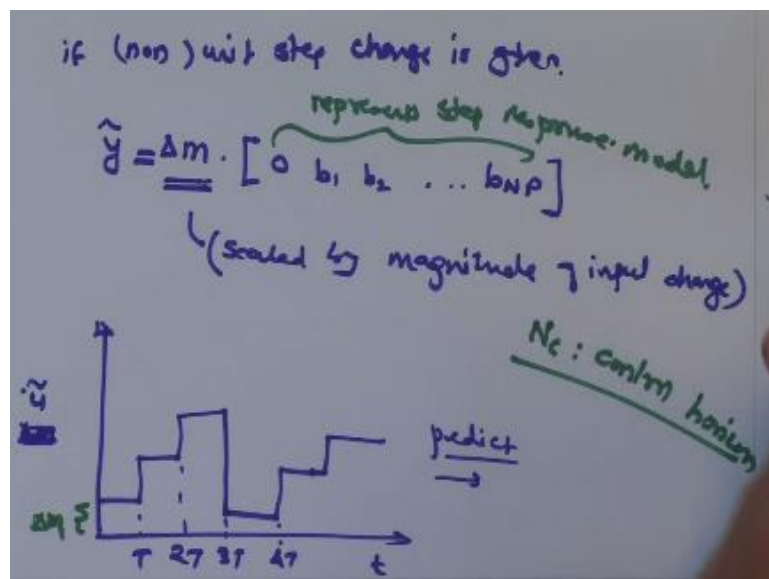 if (non) unit step change is given.
represents step response model
ỹ = Δm · [0 b₁ b₂ ... b_NP]
(scaled by magnitude of input change)
N_c : control horizon
predict
→
Δm {
T 2T 3T 4T t